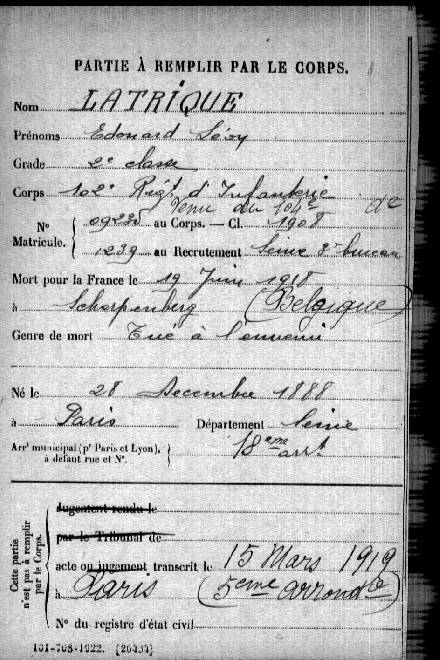 PARTIE À REMPLIR PAR LE CORPS.
Nom LATRIQUE
Prénoms Edouard Léon
Grade 2e classe
Corps 102e Régt d'Infanterie
Venu du 104e
N° Matricule. 09230 au Corps. — Cl. 1908
1239 au Recrutement Seine 3e bureau
Mort pour la France le 19 Juin 1918
à Scherpenberg (Belgique)
Genre de mort Tué à l'ennemi
Né le 28 Decembre 1888
à Paris Département Seine
Arrt municipal (pr Paris et Lyon), à défaut rue et N°. 18eme arrt
Cette partie n'est pas à remplir par le Corps.
Jugement rendu le
par le Tribunal de
acte ou jugement transcrit le 15 Mars 1919
à Paris (5eme arrondt)
N° du registre d'état civil
101-708-1922. [26434]